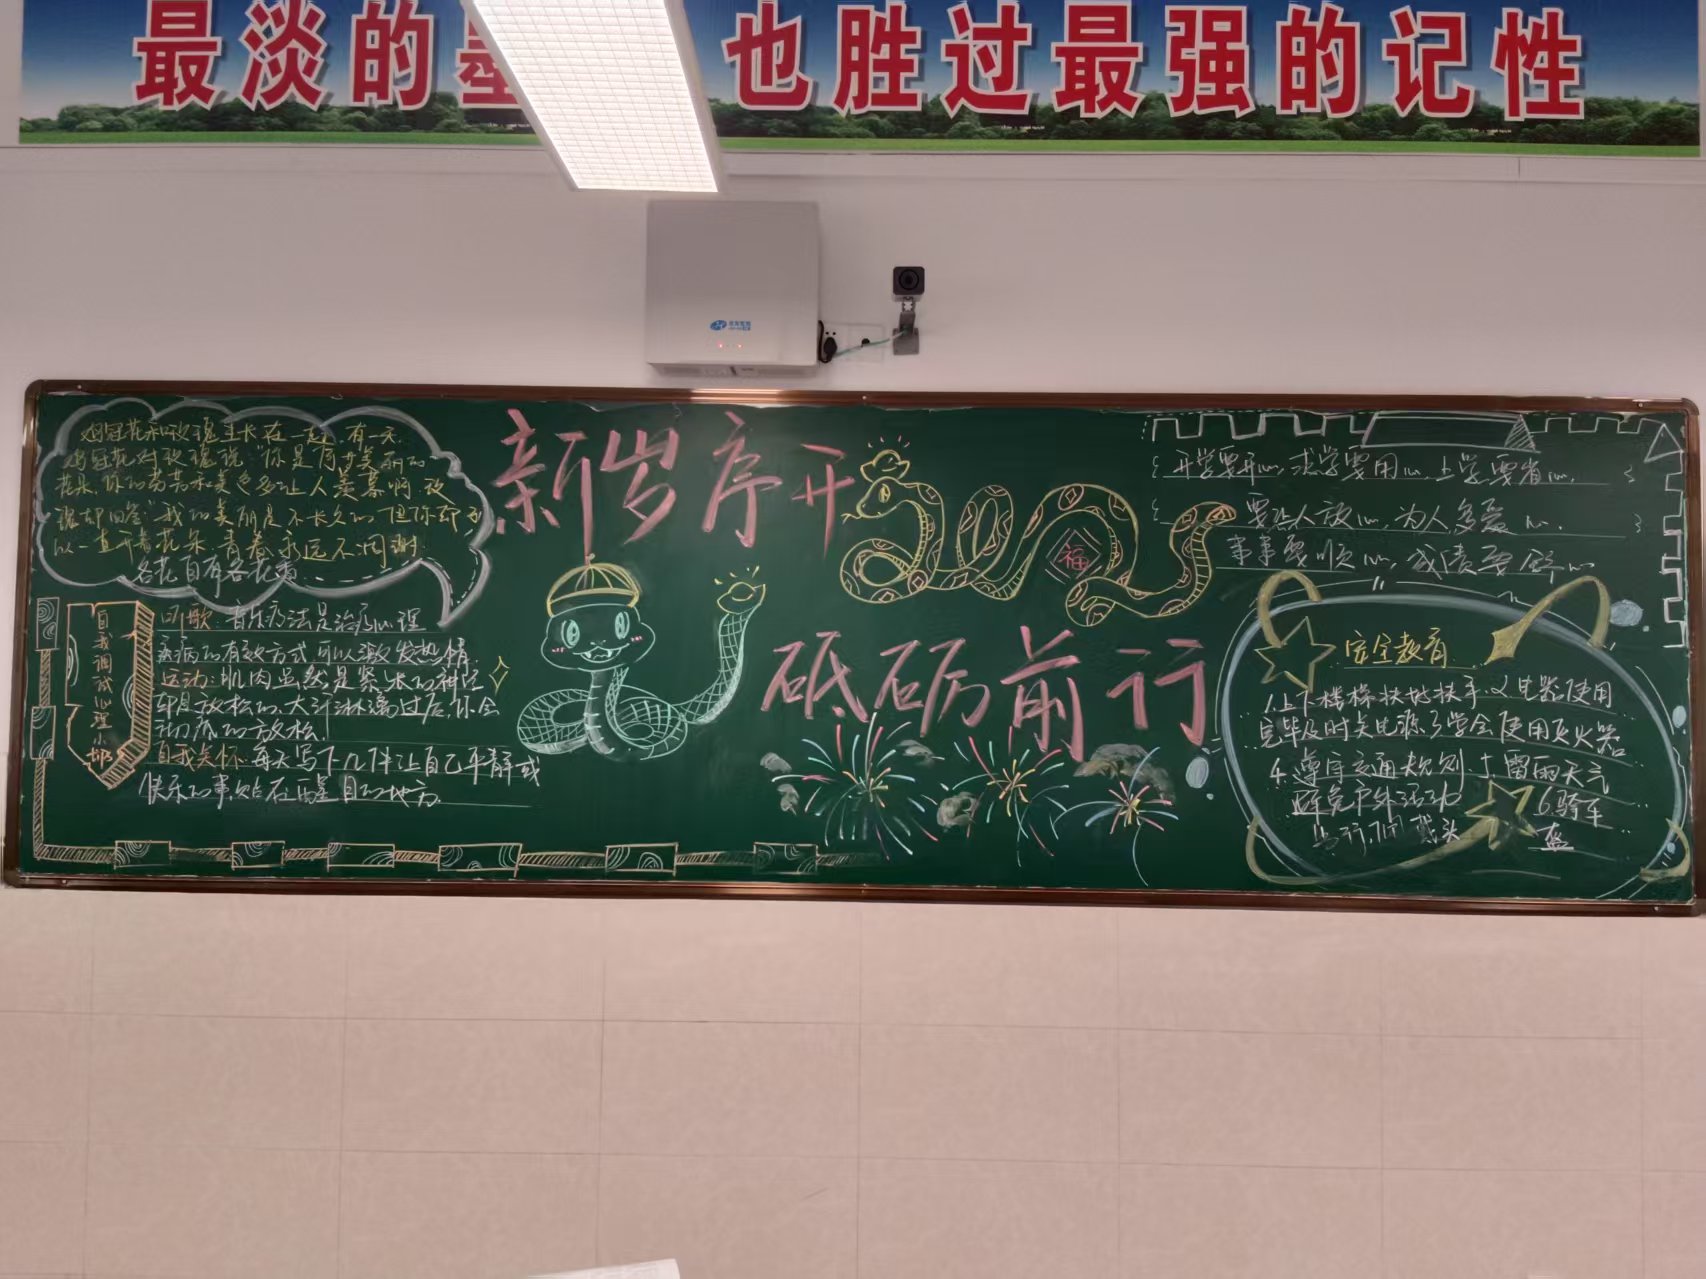 最淡的墨 也胜过最强的记性
鸡冠花和玫瑰生长在一起,有一天,
鸡冠花对玫瑰说"你是
花朵,你的 和 让人羡慕啊,玫
瑰却回答"我的美丽是不长久的,但你却可
以一直开着花朵,青春永远不凋谢
各花自有各花香
自我调试心理小
听歌:音乐疗法是治疗心理
疾病的有效方式,可以激发热情.
运动:肌肉虽然是紧张的神经
却是放松的,大汗淋漓过后,你会
的放松.
自我关怀:每天写下几件让自己平静或
快乐的事,贴在醒目的地方.
新岁序开
福
砥砺前行
开学要开心,求学要用心,上学要省心,
要让人放心,为人多爱心,
事事要顺心,成绩要舒心
安全教育
1.上下楼梯 扶手.2.电器使用
完毕及时关电源 3.学会使用灭火器
4.遵守交通规则 5.雷雨天气
避免户外活动 6.骑车
出行佩戴头
盔